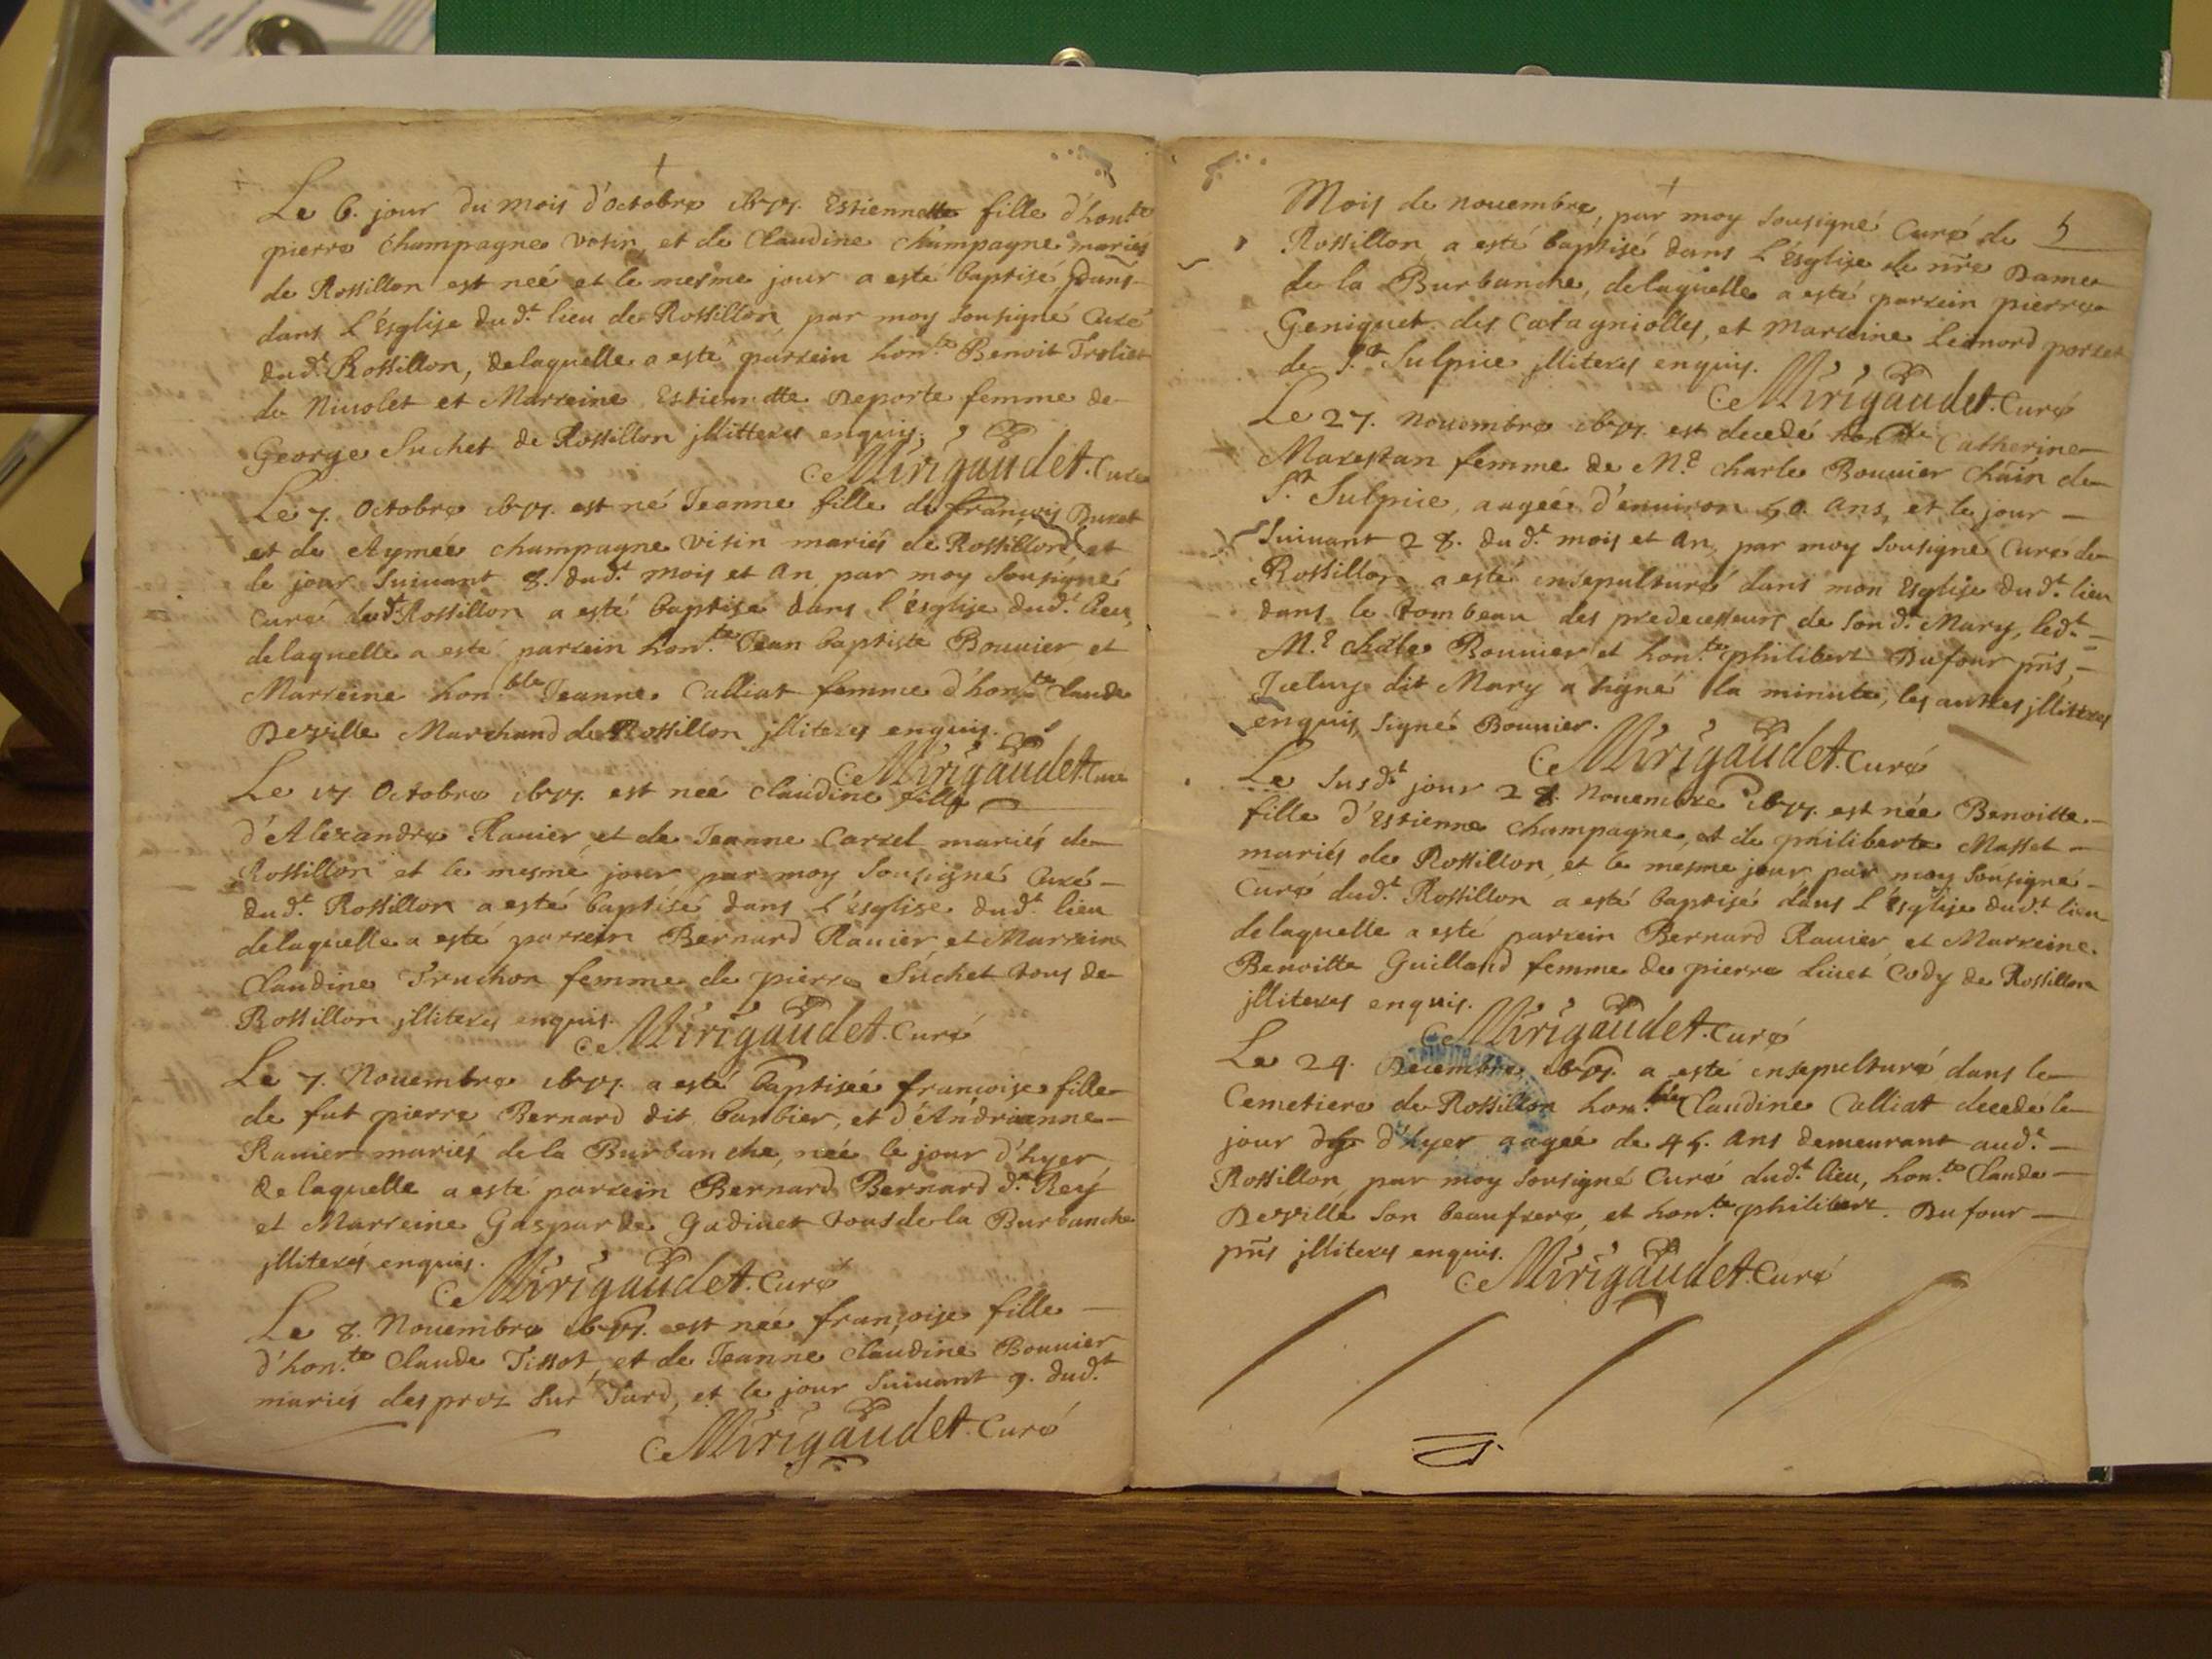 Le 6. jour du mois d'octobre Estiennette fille d'hon.te
pierre Champagne visin, et de Claudine Champagne mariés
de Rossillon est neé et le mesme jour a esté baptisé
dans L'Esglise dud.t lieu de Rossillon, par moy sousigné Curé
dud.t Rossillon, de laquelle a esté parrein hon.te Benoit
de et Marreine Estiennette Deporte femme de
George Suchet de Rossillon jllitteres enquis.
Mirigaudet. Curé
Le 7. Octobre est né Jeanne fille de françois Buret
et de Aymée champagne visin mariés de Rossillon et
le jour suiuant 8. dud.t mois et an par moy sousigné
Curé dud.t Rossillon a esté baptisé dans l'ésglise dud.t lieu,
delaquelle a esté parrein hon.te Jean baptiste Bouuier et
Marreine hon.ble Jeanne Calliat femme d'hon.te Claude
Deville Marchand de Rossillon jlliteres enquis.
Mirigaudet. Curé
Le Octobre est neé Claudine fille
d'Alexandre Rauier, et de Jeanne Carrel mariés de
Rossillon et le mesme jour par moy sousigné Curé
dud.t Rossillon a esté baptisé dans l'ésglise dud.t lieu
delaquelle a esté parrein Bernard Rauier et Marreine
Claudine Truchon femme de pierre Suchet tous de
Rossillon jlliteres enquis.
Mirigaudet. Curé
Le 7. Nouembre a esté baptiseé françoise fille
de fut pierre Bernard dit barbier, et d'Andrianne
Rauier mariés de la Burbanche, neé le jour d'hyer
de laquelle a esté parrein Bernard Bernard d.t Rey
et Marreine Gasparde Gadiuet tous de la Burbanche
jlliteres enquis.
Mirigaudet. Curé
Le 8. Nouembre est neé françoise fille
d'hon.te Claude Tissot, et de Jeanne Claudine Bouuier
mariés des proz sur Jard, et le jour suiuant 9. dud.t
Mirigaudet. Curé
5
Mois de nouembre, par moy sousigné Curé de
Rossillon a esté baptisé dans L'Esglise de nr̃e Dame
de la Burbanche, delaquelle a esté parrein pierre
Geniquet des Catagniolles, et Marreine Leonord
de S.t Sulpice jlliteres enquis.
Mirigaudet. Curé
Le 27. nouembre est decedé Catherine
Marestan femme de M.e Charle Bouuier de
S.t Sulpice, aageé d'enuiron 50 ans, et le jour
suiuant 28. dud.t mois et an, par moy sousigné Curé de
Rossillon a esté ensepulturé dans mon Esglise dud.t lieu
dans le tombeau des predecesseurs de sond.t Mary, led.t
M.e Charle Bouuier et hon.te philibert Dufour pn̄s,
Jceluy dit Mary a signé la minute, les autres jlliteres
enquis, signé Bouuier.
Mirigaudet. Curé
Le susd.t jour 28. Nouembre est née Benoitte
fille d'Estienne Champagne, et de philiberte Masset
mariés de Rossillon, et le mesme jour par moy sousigné
Curé dud.t Rossillon a esté baptisé dans L'ésglise dud.t lieu
delaquelle a esté parrein Bernard Rauier, et Marreine.
Benoitte Guilland femme de pierre Liuet Cody de Rossillon
jlliteres enquis.
Mirigaudet. Curé
Le 29. Decembre a esté ensepulturé dans le
Cemetiere de Rossillon hon.ble Claudine Calliat decedé le
jour d'hyer aageé de 45. ans demeurant aud.t
Rossillon, par moy sousigné Curé dud.t lieu, hon.te Claude
Deville son beaufrere, et hon.te philibert Dufour
pn̄s jlliteres enquis.
Mirigaudet. Curé